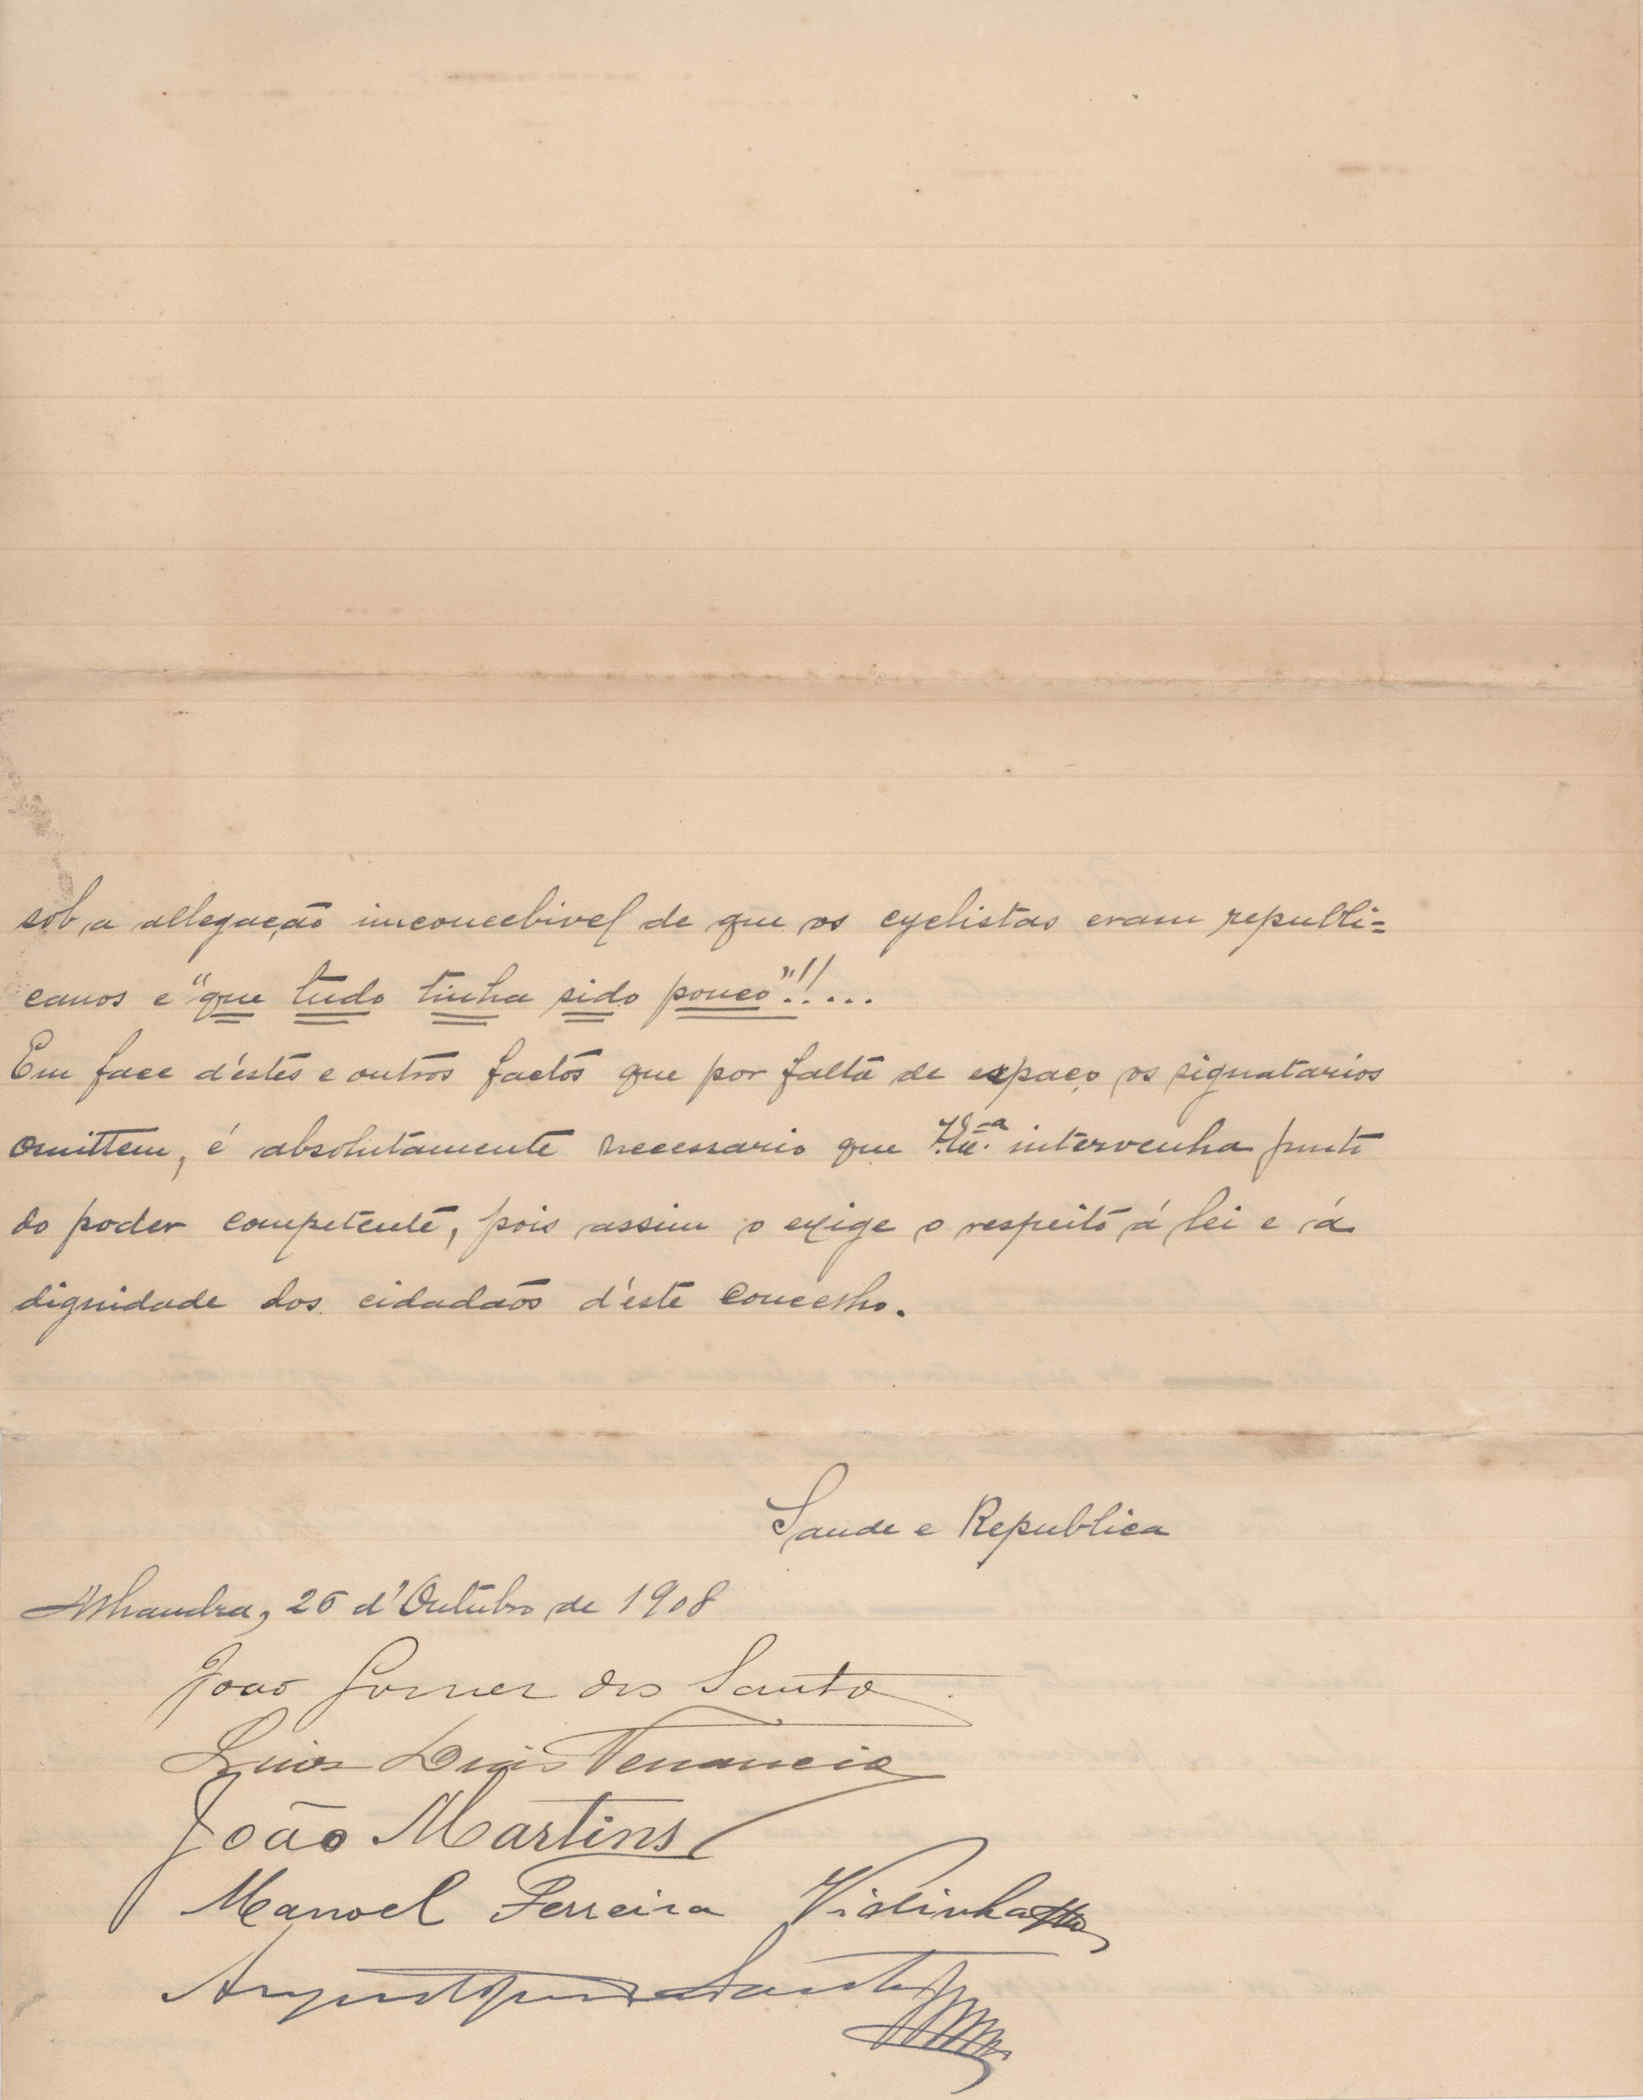 sob a allegação inconcebivel de que os cyclistas eram republi=
canos e "que tudo tinha sido pouco"!!...
Em face d'estes e outros factos que por falta de espaço os signatarios
omittem, é absolutamente necessario que V. Ex.ª intervenha junto
do poder competente, pois assim o exige o respeito á lei e á
dignidade dos cidadãos d'este concelho.
Saude e Republica
Alhandra, 26 d'Outubro de 1908
João Gomes dos Santos
Luis Venancio
João Martins
Manoel Ferreira Violinha
Santos